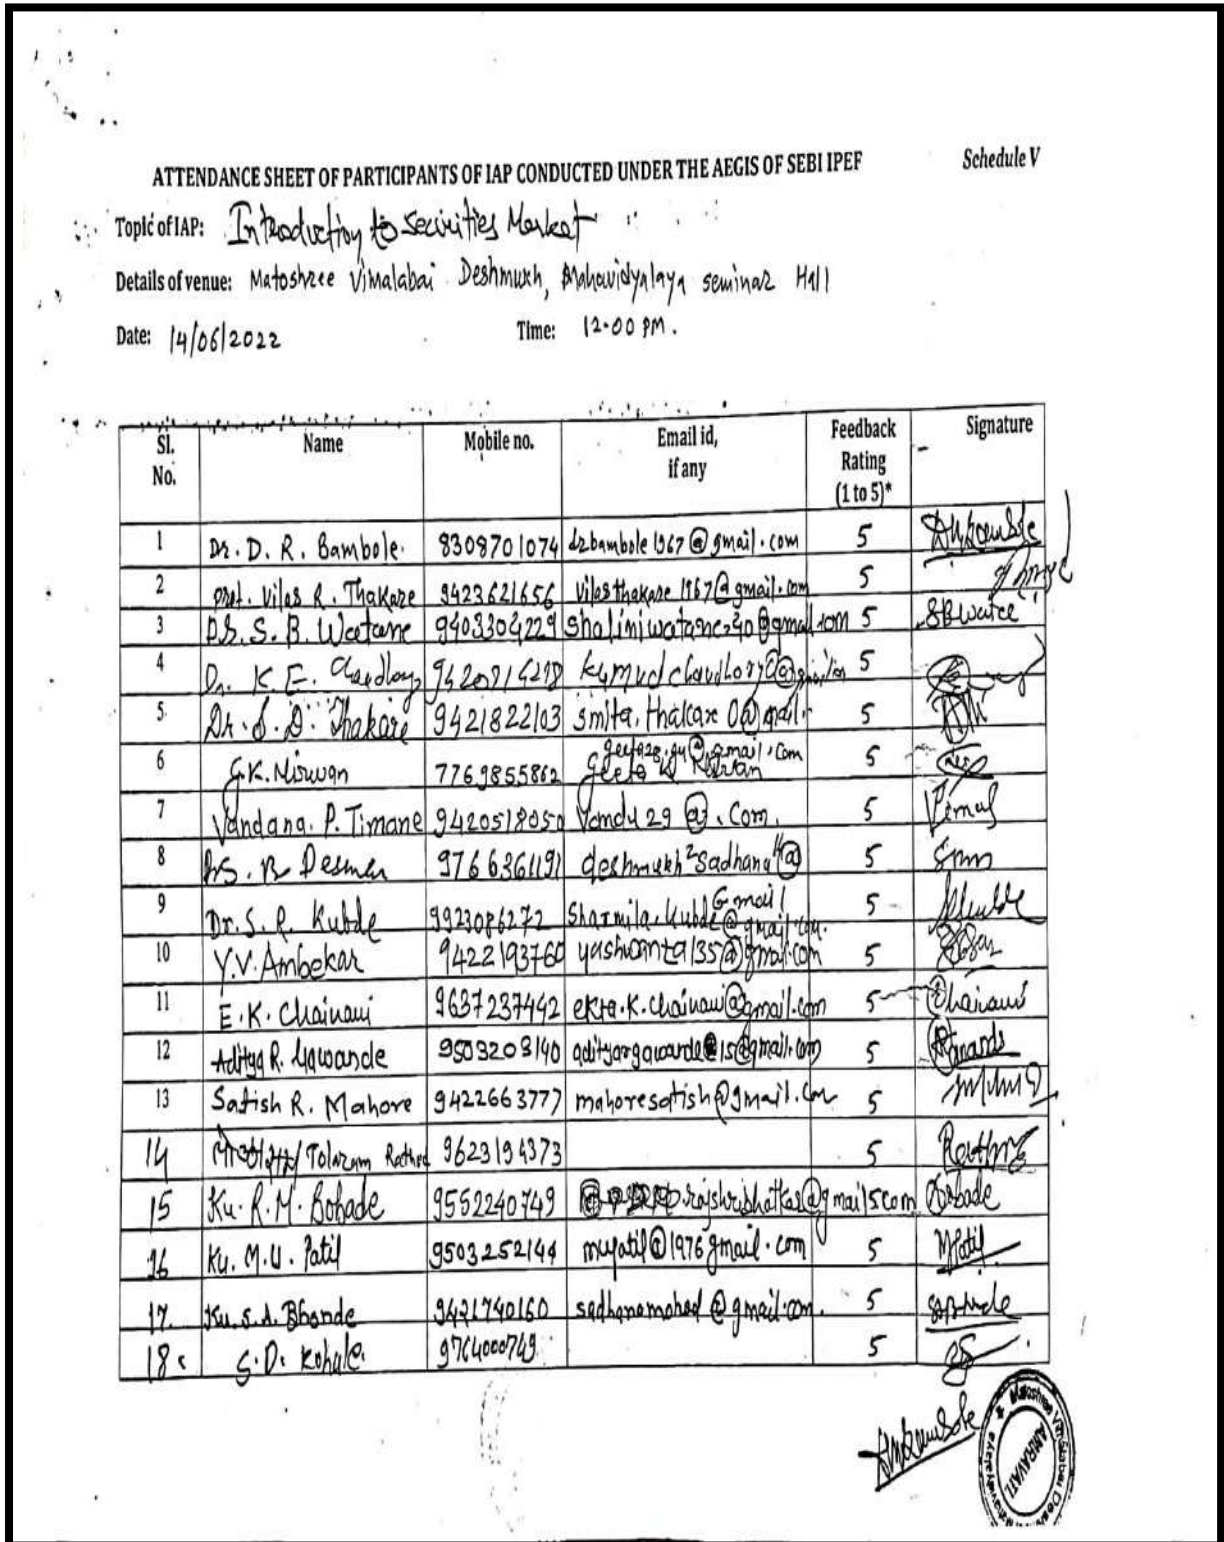 Schedule V
ATTENDANCE SHEET OF PARTICIPANTS OF IAP CONDUCTED UNDER THE AEGIS OF SEBI IPEF
Topic of IAP: Introduction to Securities Market
Details of venue: Matoshree Vimalabai Deshmukh, Mahavidyalaya seminar Hall
Date: 14/06/2022 Time: 12.00 PM.
Sl. No. Name Mobile no. Email id, if any Feedback Rating (1 to 5)* Signature
1 Dr. D. R. Bambole. 8308701074 drbambole1967@gmail.com 5
2 Prof. Vilas R. Thakare 9423621656 vilasthakare1967@gmail.com 5
3 Dr. S. B. Watane 9403304229 shaliniwatane240@gmail.com 5
4 Dr. K. E. 5
5. Dr. S. D. Thakare 9421822103 smita.thakare 0@gmail. 5
6 G.K. Nirwan 7769855862 5
7 Vandana. P. Timane 9420518050 Vandu29@.Com. 5
8 9766361191 deshmukh2sadhana@ 5
9 Dr. S. R. Kubde 9923086272 Sharmila.kubde@gmail.com. 5
10 Y.V. Ambekar 9422193760 yashwanta135@gmail.com 5
11 E.K. Chainani 9637237442 ekta.k.chainani@gmail.com 5 Chainani
12 Aditya R. Gawande 9503203140 adityargawande15@gmail.com 5
13 Satish R. Mahore 9422663777 mahoresatish@gmail.com 5
14 Tolaram Rathod 9623194373 5
15 Ku. R. M. Bobade 9552240749 rajshribhatkar@gmail5com Bobade
16 Ku. M. U. Patil 9503252144 mupatil@1976gmail.com 5 MPatil
17. Ku. S. A. Bhonde 9421740160 sadhanamohod@gmail.com. 5
18. S. D. Kohale. 9764000749. 5
AMRAVATI